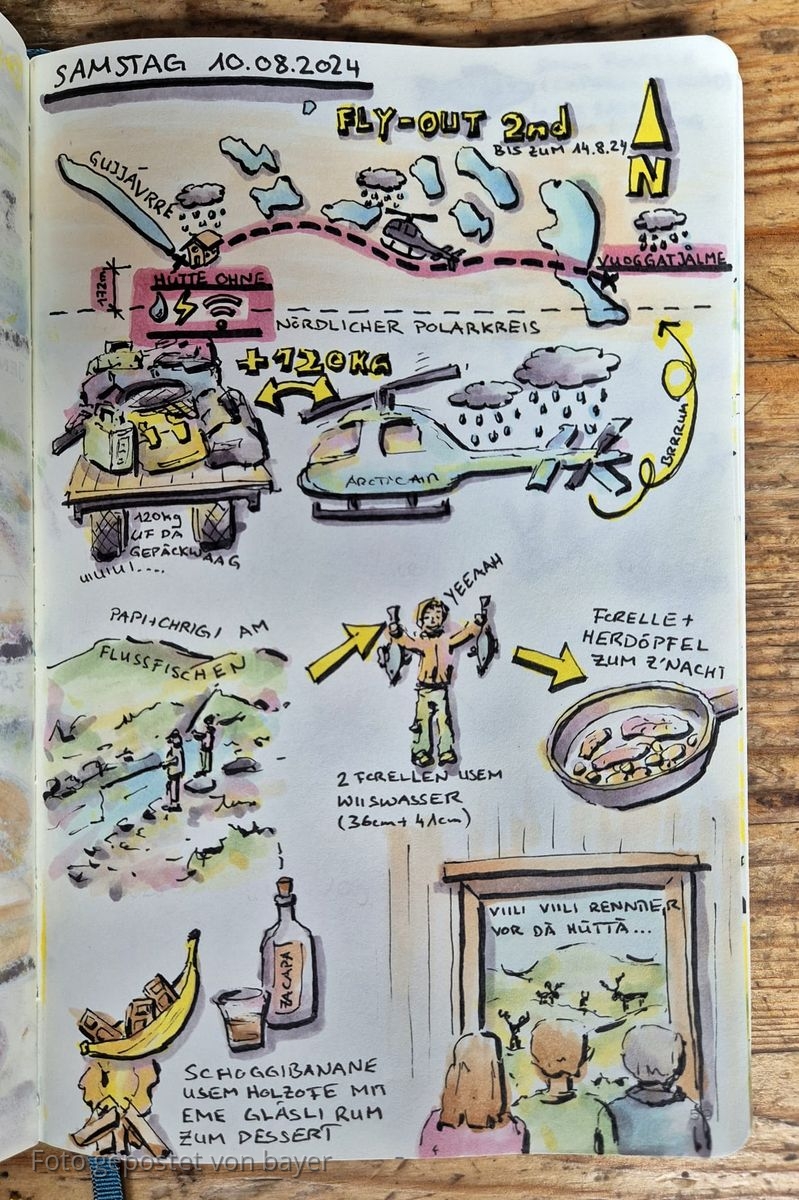 SAMSTAG 10.08.2024
FLY-OUT 2nd
BIS ZUM 14.8.24
N
GUJJÁVRRE
VUOGGATJÅLME
172m
HÜTTE OHNE
NÖRDLICHER POLARKREIS
+120KG
ARCTIC AIR
BRRRUM
120kg
UF DÄ
GEPÄCKWAAG
UIUIUI....
PAPI+CHRIGI AM
FLUSSFISCHEN
YEEAAH
2 FORELLEN USEM
WIISWASSER
(36cm + 41cm)
FORELLE +
HERDÖPFEL
ZUM Z'NACHT
VIILI VIILI RENNTIER
VOR DÄ HÜTTÄ...
ZACAPA
SCHOGGIBANANE
USEM HOLZOFE MIT
EME GLÄSLI RUM
ZUM DESSERT
Foto gepostet von bayer